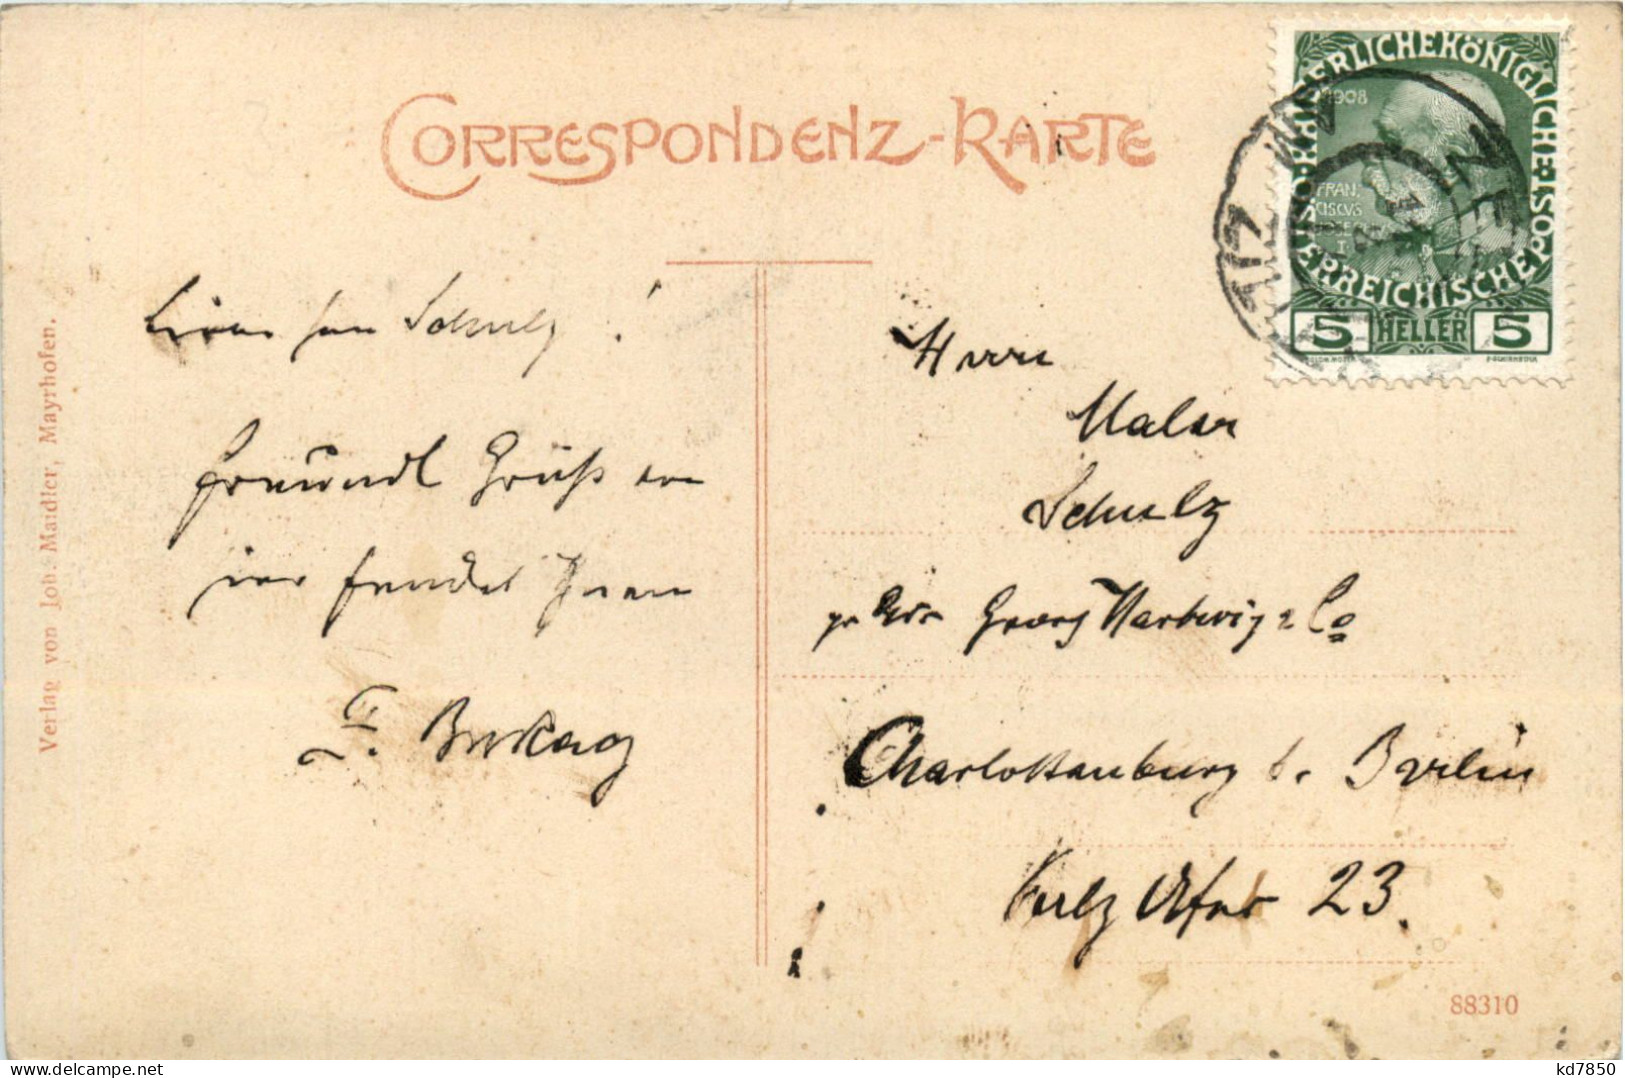 CORRESPONDENZ-KARTE
KAISERLICHE KÖNIGLICHE ÖSTERREICHISCHE POST
1908
FRAN
CISCVS
IOSEPH
I
5 HELLER 5
Verlag von Joh. Maidler, Mayrhofen.
Lieber Herr Schulz!
Freundl Grüße von
hier sendet Ihnen
Herrn
Maler
Schulz
Georg Hartwig & Co
Charlottenburg b. Berlin
Salz Ufer 23.
88310
kd7850